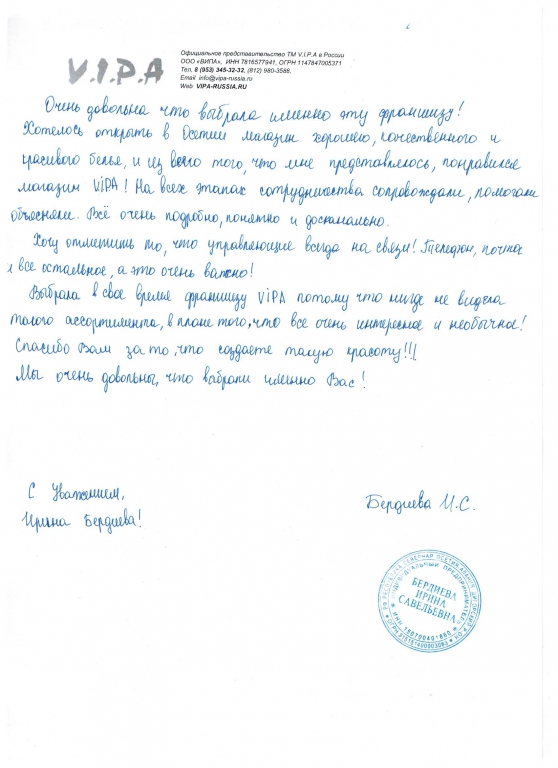 V.I.P.A
Официальное представительство ТМ V.I.P.A в России
ООО «ВИПА», ИНН 7816577941, ОГРН 1147847005371
Тел. 8 (953) 345-32-32, (812) 980-3588,
Email info@vipa-russia.ru
Web VIPA-RUSSIA.RU
Очень довольна что выбрала именно эту франшизу!
Хотелось открыть в Осетии магазин хорошего, качественного и
красивого белья, и из всего того, что мне представлялось, понравился
магазин ViPA! На всех этапах сотрудничества сопровождали, помогали
объясняли. Всё очень подробно, понятно и досканально.
Хочу отметить то, что управляющие всегда на связи! Телефон, почта
и все остальное, а это очень важно!
Выбрала в свое время франшизу ViPA потому что нигде не видела
такого ассортимента, в плане того, что все очень интересное и необычное!
Спасибо Вам за то, что создаете такую красоту!!!
Мы очень довольны, что выбрали именно Вас!
С Уважением,
Ирина Бердиева!
Бердиева И.С.
ИНДИВИДУАЛЬНЫЙ ПРЕДПРИНИМАТЕЛЬ
БЕРДИЕВА
ИРИНА
САВЕЛЬЕВНА